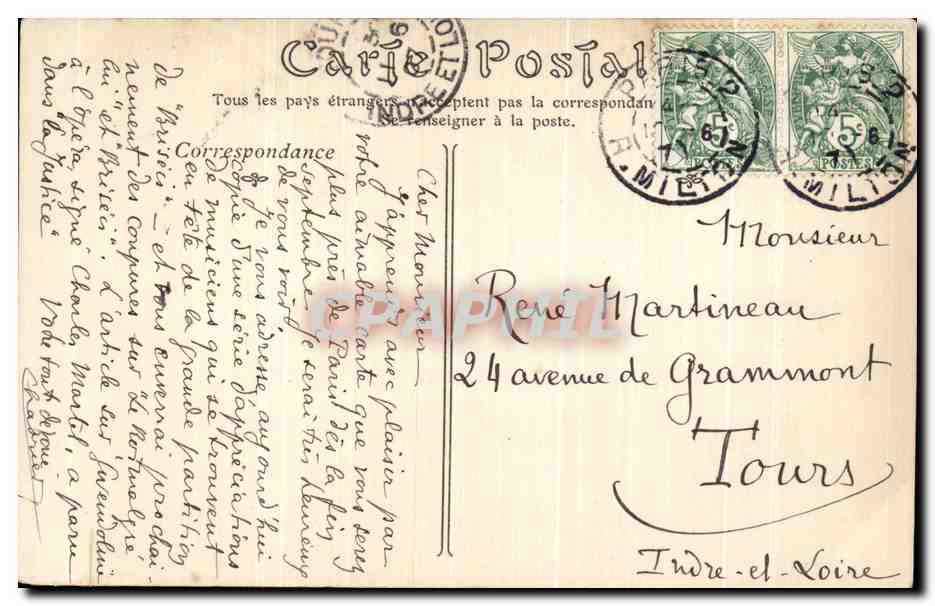 Carte Postale
Tous les pays étrangers n'acceptent pas la correspondan
Se renseigner à la poste.
Correspondance
Cher Monsieur
J'apprends avec plaisir par
votre aimable carte que vous serez
plus près de Paris dès la fin
septembre. Je serai très heureux
de vous voir.
Je vous adresse aujourd'hui
copie d'une série d'appréciations
de musiciens qui se trouvent
en tête de la grande partition
de "Briséis" - et vous enverrai prochai-
nement des coupures sur "Le Roi malgré
lui" et "Briséis". L'article sur Gwendoline
à l'opéra, signé Charles Martel, a paru
dans la Justice"
Votre tout dévoué
Chabrier
Monsieur
René Martineau
24 avenue de Grammont
Tours
Indre-et-Loire
5c
POSTES
5c
POSTES
PARIS
R. MILTON
MILTON
INDRE ET LO
CPAPHIL